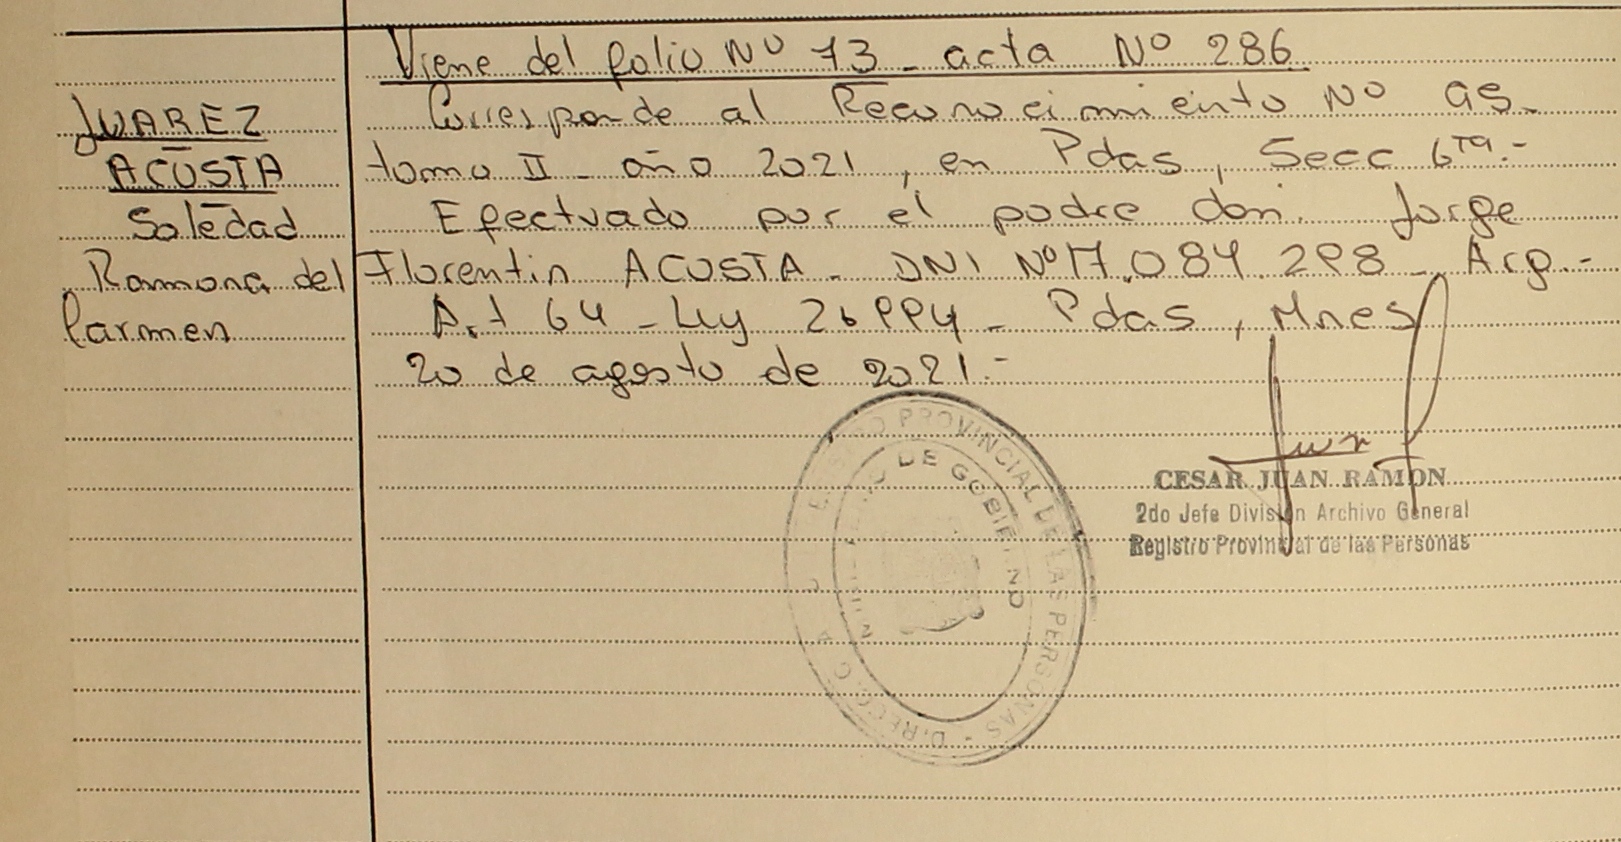 Viene del folio Nº 73 - acta Nº 286
JUAREZ
ACOSTA
Soledad
Ramona del
Carmen
Corresponde al Reconocimiento Nº 95-
tomo II - año 2021, en Pdas, Secc 6ta.-
Efectuado por el padre don. Jorge
Florentin ACOSTA - DNI Nº 17.084.298 - Arg.-
Art 64 - Ley 26994 - Pdas, Mnes
20 de agosto de 2021.-
REGISTRO PROVINCIAL DE LAS PERSONAS
MINISTERIO DE GOBIERNO
CESAR JUAN RAMON
2do Jefe División Archivo General
Registro Provincial de las Personas